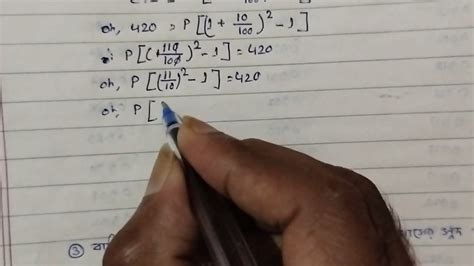 oh, 420 = P[(1 + 10/100)² - 1]
∴ P[(110/100)² - 1] = 420
oh, P[(11/10)² - 1] = 420
oh, P[
③